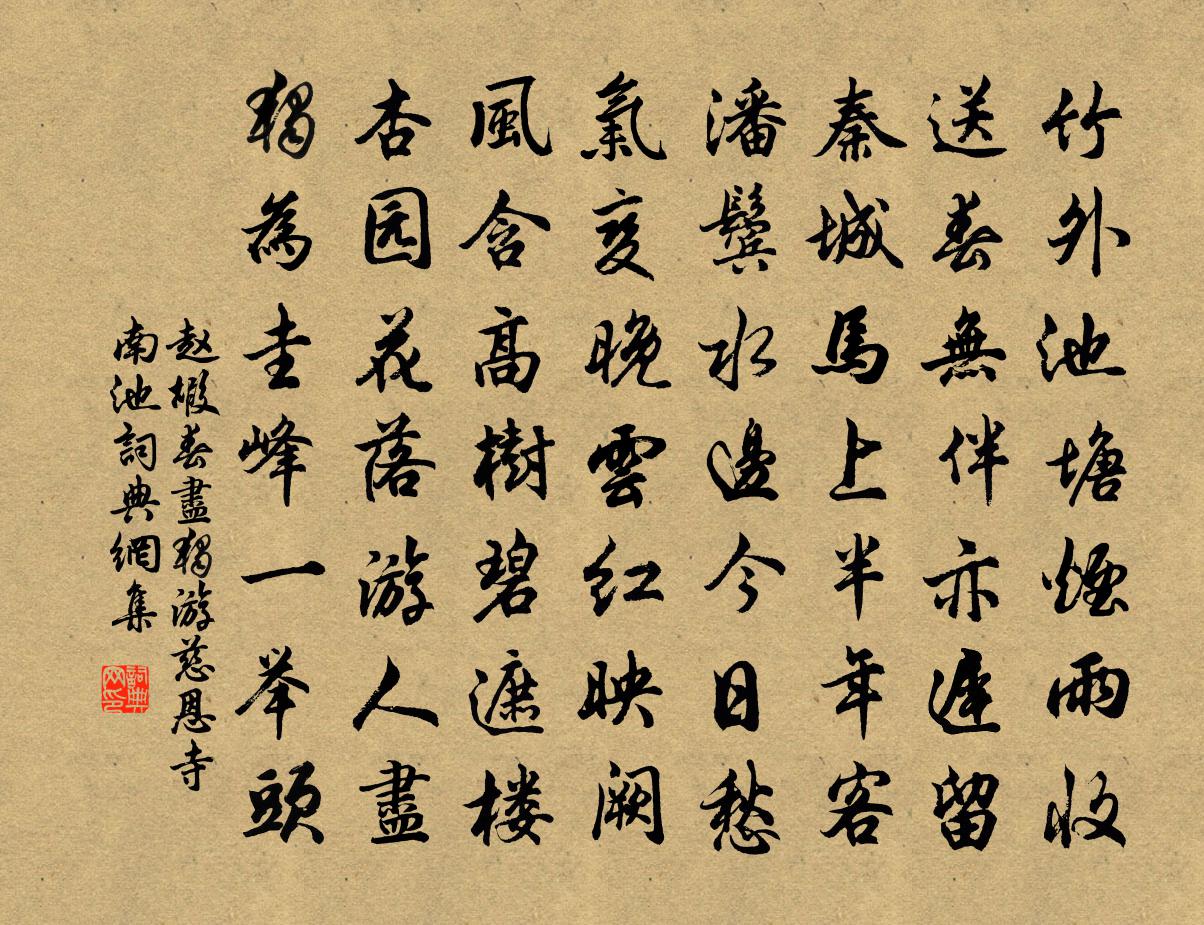 竹外池塘煙雨收
送春無伴亦遲留
秦城馬上半年客
潘鬢水邊今日愁
氣变晚雲紅映闕
風含高樹碧遮楼
杏园花落游人盡
獨為圭峰一举頭
赵嘏春盡獨游慈恩寺
南池詞典網集
詞典网印